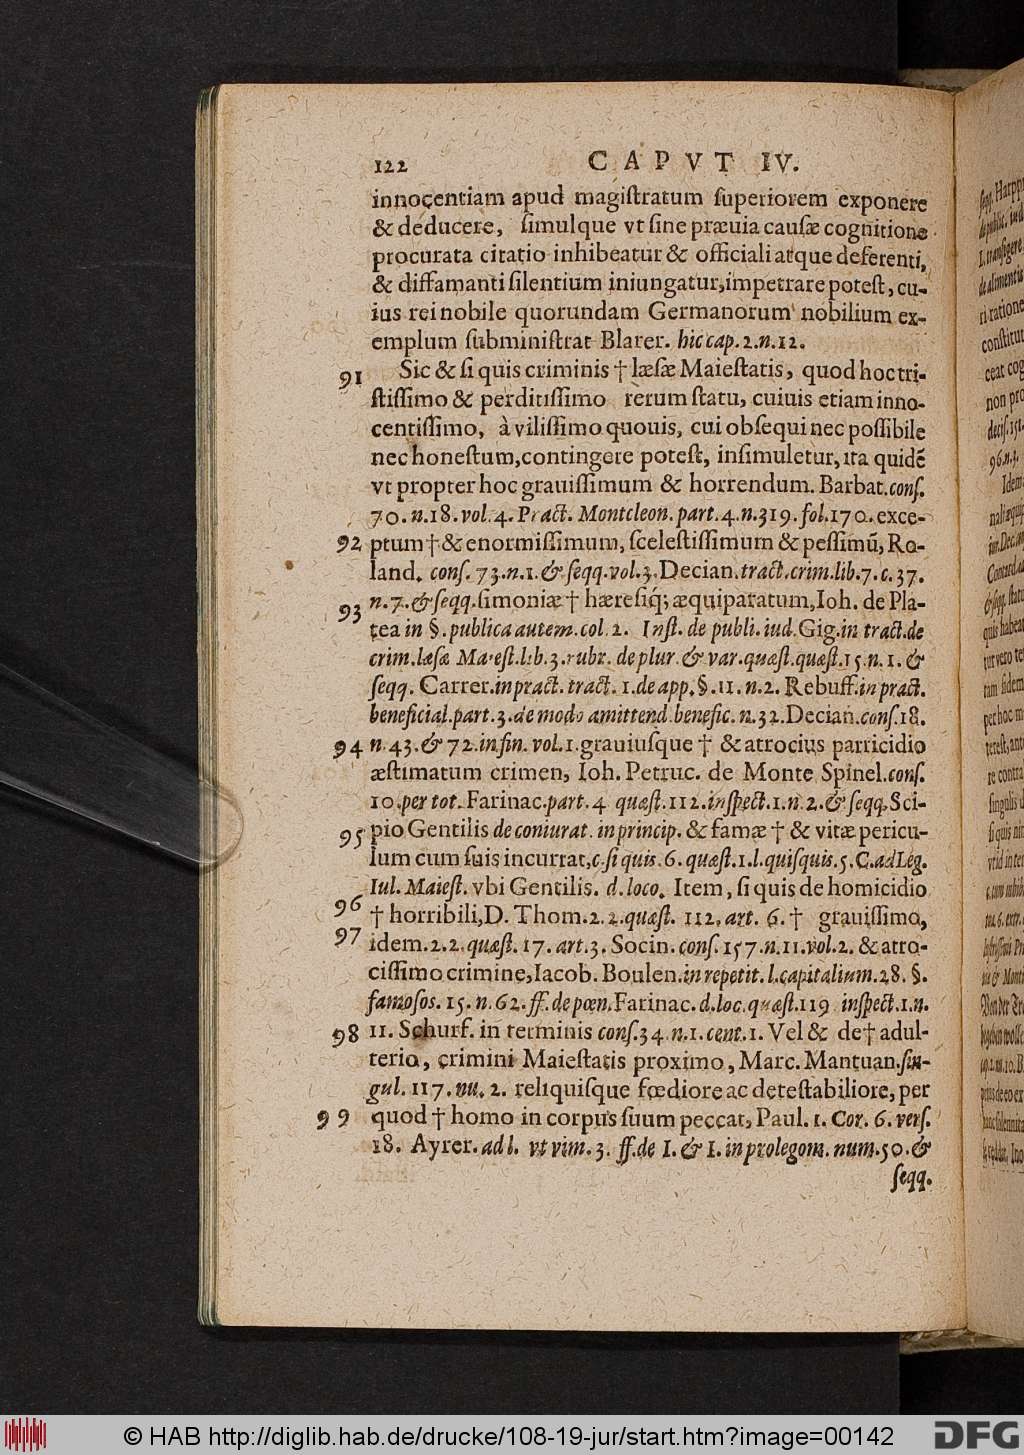 122 CAPVT IV.
innocentiam apud magiſtratum ſuperiorem exponere
& deducere, ſimulque vt ſine præuia cauſæ cognitione
procurata citatio inhibeatur & officiali atque deferenti,
& diffamanti ſilentium iniungatur, impetrare poteſt, cu-
ius rei nobile quorundam Germanorum nobilium ex-
emplum ſubminiſtrat Blarer. hic cap. 2. n. 12.
91 Sic & ſi quis criminis † læſæ Maieſtatis, quod hoc tri-
ſtiſſimo & perditiſſimo rerum ſtatu, cuiuis etiam inno-
centiſſimo, à viliſſimo quouis, cui obſequi nec poſſibile
nec honeſtum, contingere poteſt, inſimuletur, ita quidẽ
vt propter hoc grauiſſimum & horrendum. Barbat. conſ.
70. n. 18. vol. 4. Pract. Montcleon. part. 4. n. 319. fol. 170. exce-
92 ptum † & enormiſſimum, ſceleſtiſſimum & peſſimũ, Ro-
land. conſ. 73. n. 1. & ſeqq. vol. 3. Decian. tract. crim. lib. 7. c. 37.
93 n. 7. & ſeqq. ſimoniæ † hæreſiq́; æquiparatum, Ioh. de Pla-
tea in §. publica autem. col. 2. Inſt. de publi. iud. Gig. in tract. de
crim. læſæ Maieſt. lib. 3. rubr. de plur. & var. quæſt. quæſt. 15. n. 1. &
ſeqq. Carrer. in pract. tract. 1. de app. §. 11. n. 2. Rebuff. in pract.
beneficial. part. 3. de modo amittend. benefic. n. 32. Decian. conſ. 18.
94 n. 43. & 72. in fin. vol. 1. grauiuſque † & atrocius parricidio
æſtimatum crimen, Ioh. Petruc. de Monte Spinel. conſ.
10. per tot. Farinac. part. 4 quæſt. 112. inſpect. 1. n. 2. & ſeqq. Sci-
95 pio Gentilis de coniurat. in princip. & famæ † & vitæ pericu-
lum cum ſuis incurrat, c. ſi quis. 6. quæſt. 1. l. quiſquis. 5. C. ad Leg.
Iul. Maieſt. vbi Gentilis. d. loco. Item, ſi quis de homicidio
96 † horribili, D. Thom. 2. 2. quæſt. 112. art. 6. † grauiſſimo,
97 idem. 2. 2. quæſt. 17. art. 3. Socin. conſ. 157. n. 11. vol. 2. & atro-
ciſſimo crimine, Iacob. Boulen. in repetit. l. capitalium. 28. §.
famoſos. 15. n. 62. ff. de pœn. Farinac. d. loc. quæſt. 119 inſpect. 1. n.
98 11. Schurf. in terminis conſ. 34. n. 1. cent. 1. Vel & de † adul-
terio, crimini Maieſtatis proximo, Marc. Mantuan. ſin-
gul. 117. nu. 2. reliquiſque fœdiore ac deteſtabiliore, per
99 quod † homo in corpus ſuum peccat, Paul. 1. Cor. 6. verſ.
18. Ayrer. ad l. vt vim. 3. ff. de I. & I. in prolegom. num. 50. &
ſeqq.
© HAB http://diglib.hab.de/drucke/108-19-jur/start.htm?image=00142
DFG